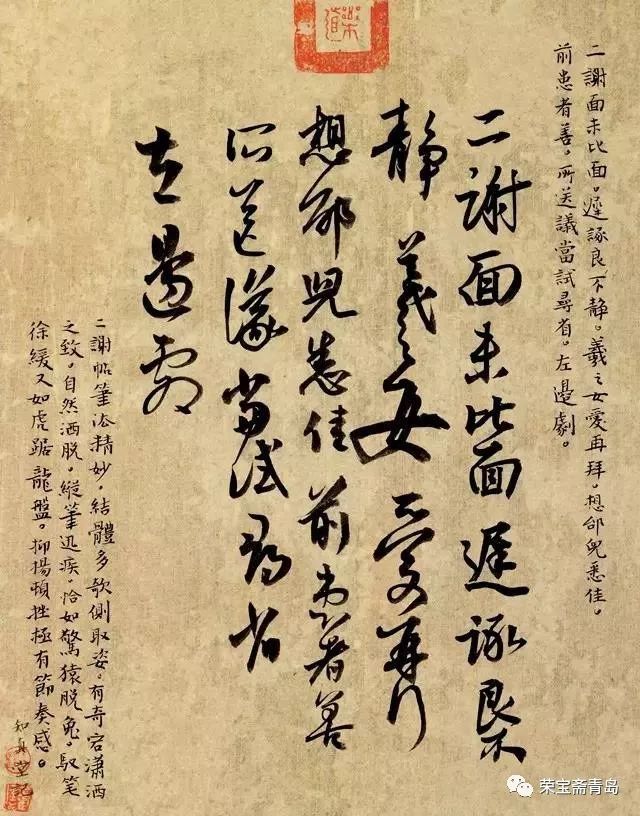 二謝面未比面。遲詠良不静。羲之女愛再拜。想邰兒悉佳。
前患者善。所送議當試尋省。左邊劇。
二謝面未比面遲詠良不
静羲之女愛再拜
想邰兒悉佳前患者善
所送議當試尋省
左邊劇
二謝帖筆法精妙，結體多欹側取姿，有奇宕瀟洒
之致，自然洒脱，縱筆迅疾，恰如驚猿脱兔，馭笔
徐緩又如虎踞龍盤，抑揚頓挫極有節奏感。
知真堂記
荣宝斋青岛